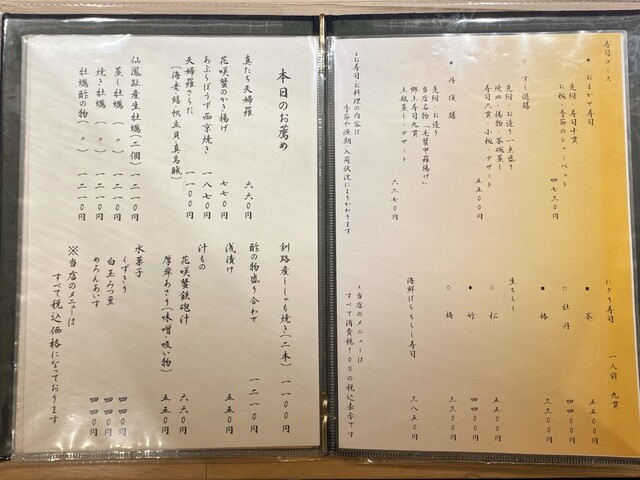 寿司コース
◆ おまかせ寿司
先附・寿司十貫
お椀・季節のシャーベット
四七三〇円
◇ すし遊膳
先附・お造り一点盛り
焼皿・揚物・茶碗蒸し
寿司六貫・小椀・デザート
五五〇〇円
◆ 丹頂膳
先附・お造り
当店名物「毛蟹甲羅揚げ」
郷土寿司九貫
土瓶蒸し・デザート
六二七〇円
*お寿司お料理の内容は
季節や漁期・入荷状況によりかわります
にぎり寿司 一人前 九貫
■ 葵 五五〇〇円
□ 牡丹 四四〇〇円
■ 椿 三三〇〇円
生ちらし
◇ 松 五五〇〇円
◆ 竹 四四〇〇円
◇ 梅 三三〇〇円
海鮮ばらちらし寿司 三八五〇円
*当店のメニューは
すべて消費税10%の税込表示です
本日のお薦め
真たち天婦羅 六六〇円
花咲蟹のかき揚げ 七七〇円
あぶらぼうず西京焼き 一八七〇円
天婦羅さらだ 一一〇〇円
(海老・鱚・帆立貝・真烏賊)
仙鳳趾産生牡蠣(二個) 一二一〇円
蒸し牡蠣(〃) 一二一〇円
焼き牡蠣(〃) 一二一〇円
牡蠣酢の物(〃) 一二一〇円
釧路産ししゃも焼き(二本) 一一〇〇円
酢の物盛り合わせ 一二一〇円
浅漬け 五五〇円
汁もの
花咲蟹鉄砲汁 六六〇円
厚岸あさり(味噌・吸い物) 五五〇円
水菓子
くずきり 四四〇円
白玉みつ豆 四四〇円
めろんあいす 四四〇円
※当店のメニューは
すべて税込価格になっております